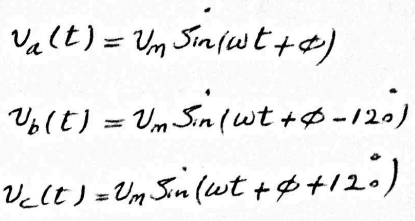 υₐ(t) = υₘ Sin(ωt + φ)
υ_b(t) = υₘ Sin(ωt + φ - 120°)
υ_c(t) = υₘ Sin(ωt + φ + 120°)